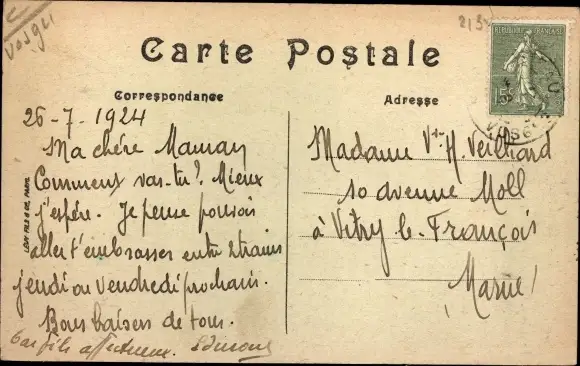 Vosges
Carte Postale
Correspondance
Adresse
REPUBLIQUE FRANÇAISE
15c
26-7-1924
Ma chère Maman
Comment vas-tu? Mieux
j'espère. Je pense pouvoir
aller t'embrasser entre 2 trains
jeudi ou vendredi prochain.
Bons baisers de tous.
Ton fils affectueux.
Madame Vve H. Veilliard
10 avenue Moll
à Vitry le-François
Marne
LEVY FILS & CIE, PARIS